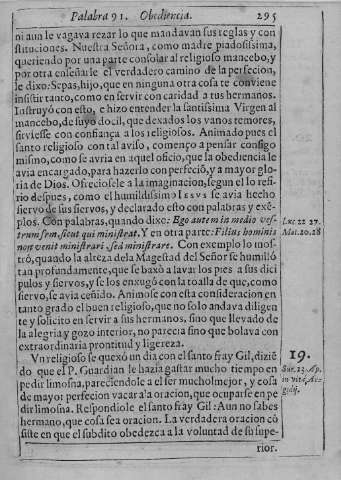 Palabra 91. Obediencia. 295
ni aun le vagava rezar lo que mandavan sus reglas y con
stituciones. Nuestra Señora, como madre piadosissima,
queriendo por una parte consolar al religioso mancebo, y
por otra enseñarle el verdadero camino de la perfecion,
le dixo: Sepas, hijo, que en ninguna otra cosa te conviene
insistir tanto, como en servir con caridad a tus hermanos.
Instruyó con esto, e hizo entender la santissima Virgen al
mancebo, de suyo docil, que dexados los vanos temores,
sirviesse con confiança a los religiosos. Animado pues el
santo religioso con tal aviso, començo a pensar consigo
mismo, como se avria en aquel oficio, que la obediencia le
avia encargado, para hazerlo con perfeció, y a mayor glo-
ria de Dios. Ofreciosele a la imaginacion, segun el lo refi-
rio despues, como el humildissimo Iesvs se avia hecho
siervo de sus siervos, y declarado esto con palabras y exé-
plos. Con palabras, quando dixo: Ego autem in medio ves-
trum sem, sicut qui ministreat. Y en otra parte: Filius hominis
non venit ministrari, sed ministrare. Con exemplo lo mos-
tró, quando la alteza de la Magestad del Señor se humilló
tan profundamente, que se baxó a lavar los pies a sus dici
pulos y siervos, y se los enxugó con la toalla de que, como
siervo, se avia ceñido. Animose con esta consideracion en
tanto grado el buen religioso, que no solo andava diligen
te y solicito en servir a sus hermanos, sino que llevado de
la alegria y gozo interior, no parecia sino que bolava con
extraordinaria prontitud y ligereza.
Un religioso se quexó un dia con el santo fray Gil, dizié
do que el P. Guardian le hazia gastar mucho tiempo en
pedir limosna, pareciendole a el ser mucho mejor, y cosa
de mayor perfecion vacar a la oracion, que ocuparse en pe
dir limosna. Respondiole el santo fray Gil: Aun no sabes
hermano, que cosa sea oracion. La verdadera oracion có
siste en que el subdito obedezca a la voluntad de su supe-
rior.
Luc. 22 27.
Mat. 20. 28
19.
Sur. 23. Ap.
in vita,
gidij.